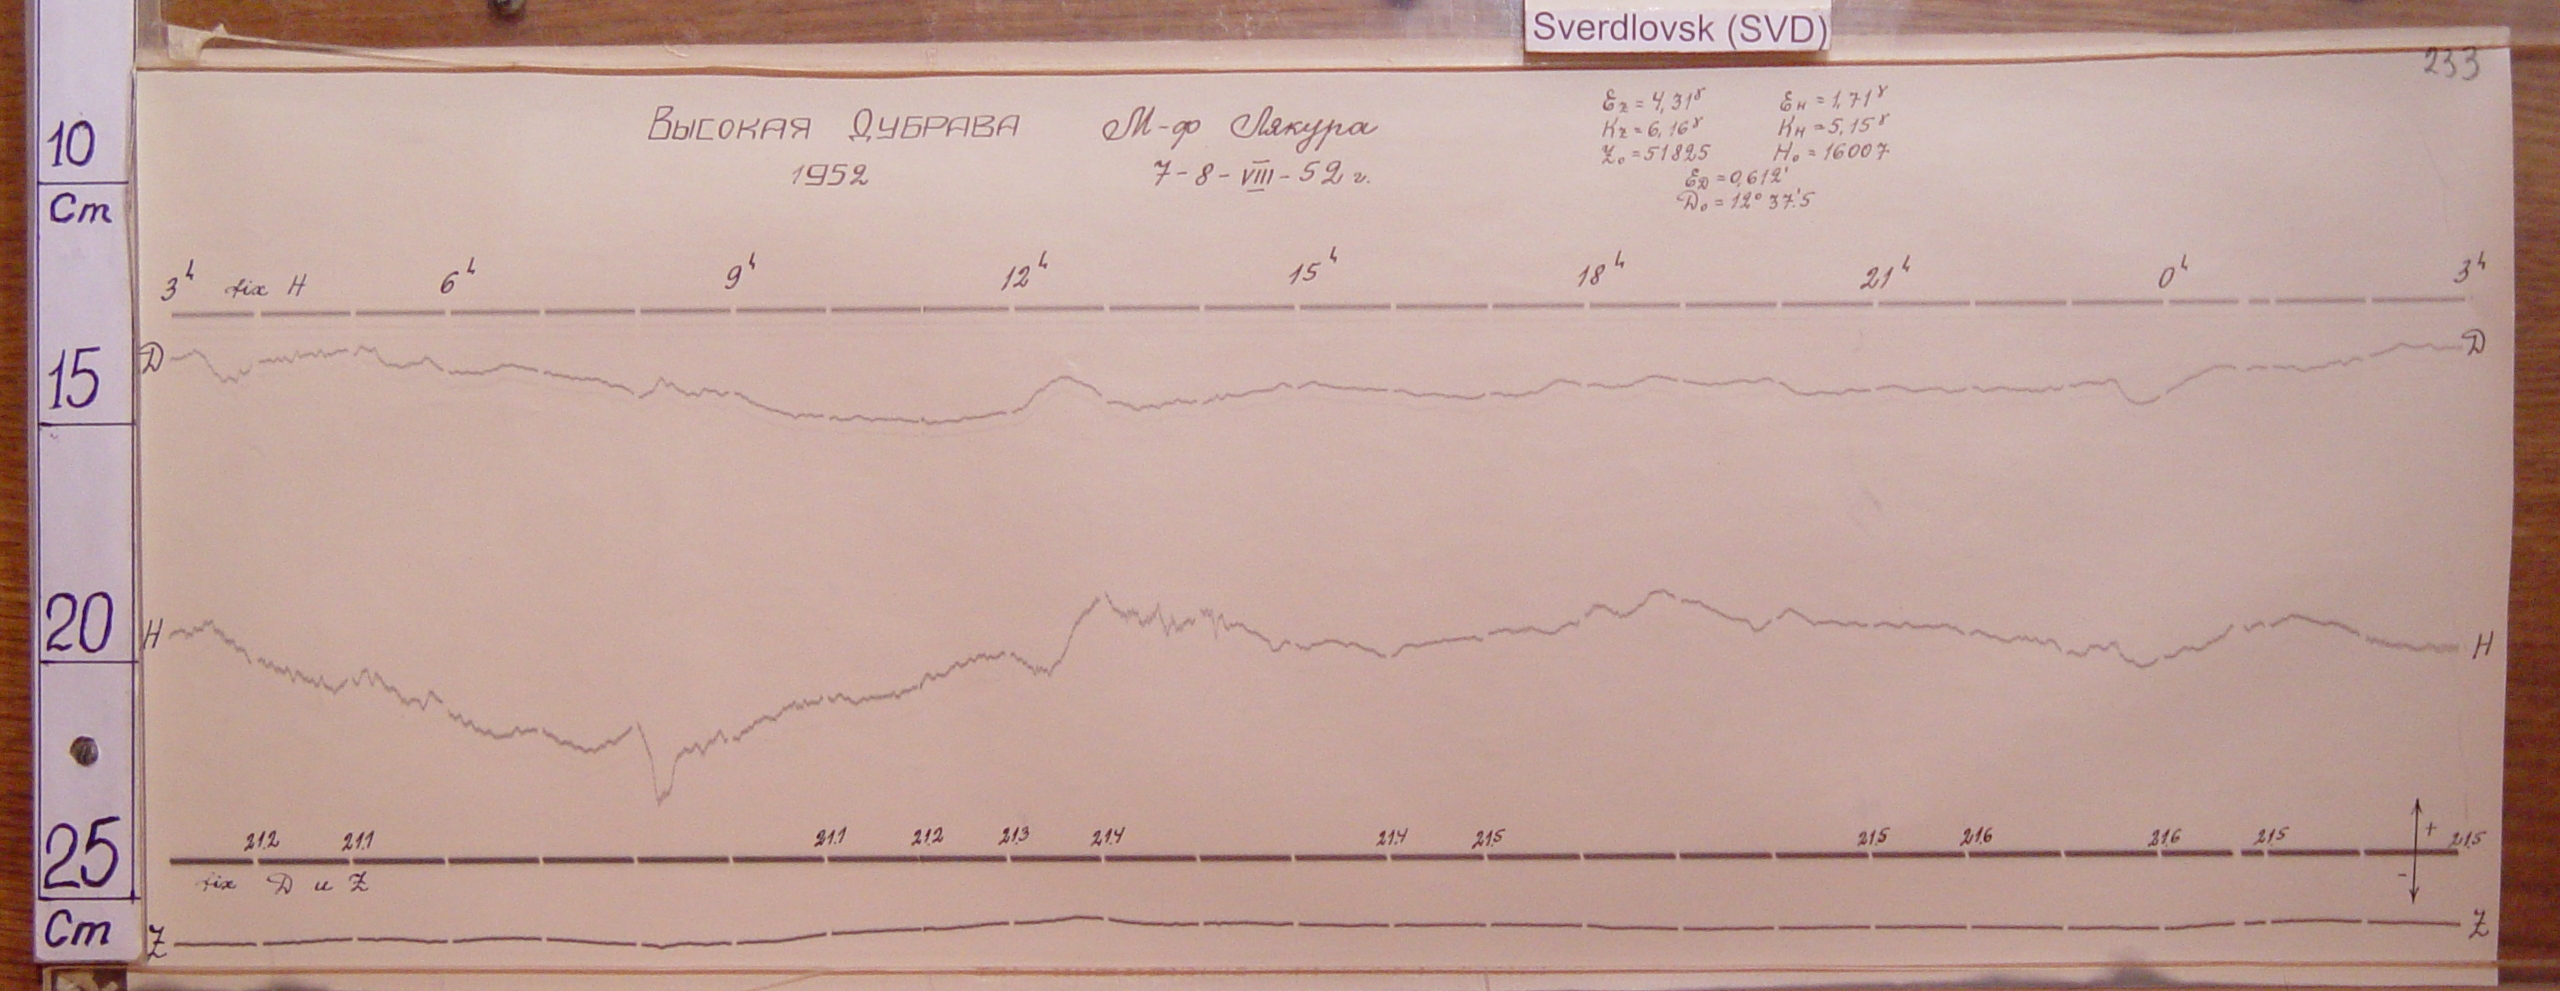 Sverdlovsk (SVD)
233
Высокая Дубрава М-ф Лякура
1952 7-8-VIII-52 г.
Ez = 4,31γ EH = 1,71γ
Kz = 6,16γ KH = 5,15γ
Z₀ = 51825 H₀ = 16007
ED = 0,612'
D₀ = 12° 37.'5
10
Cm
15
20
25
Cm
3h fix H 6h 9h 12h 15h 18h 21h 0h 3h
D D
H H
21.2 21.1 21.1 21.2 21.3 21.4 21.4 21.5 21.5 21.6 21.6 21.5 21.5
+
-
fix D и Z
Z Z